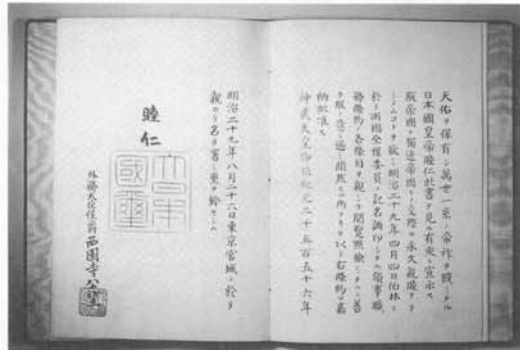 天佑ヲ保有シ萬世一系ノ帝祚ヲ踐ミタル
日本國皇帝睦仁此書ヲ見ル有衆ニ宣示ス
朕帝國ト獨逸帝國トノ交際ヲ永久親睦ナラ
シメムコトヲ欲シ明治二十九年四月四日伯林ニ
於テ兩國全權委員ノ記名調印シタル領事職
務條約ノ各條目ヲ親シク閲覧點檢シタルニ善
ク朕カ意ニ適シ間然スル所ナキヲ以テ右條約ヲ嘉
納批准ス
神武天皇即位紀元二千五百五十六年
明治二十九年八月二十六日東京宮城ニ於テ
親ラ名ヲ署シ璽ヲ鈐セシム
睦仁
大日本國璽
外務大臣侯爵西園寺公望